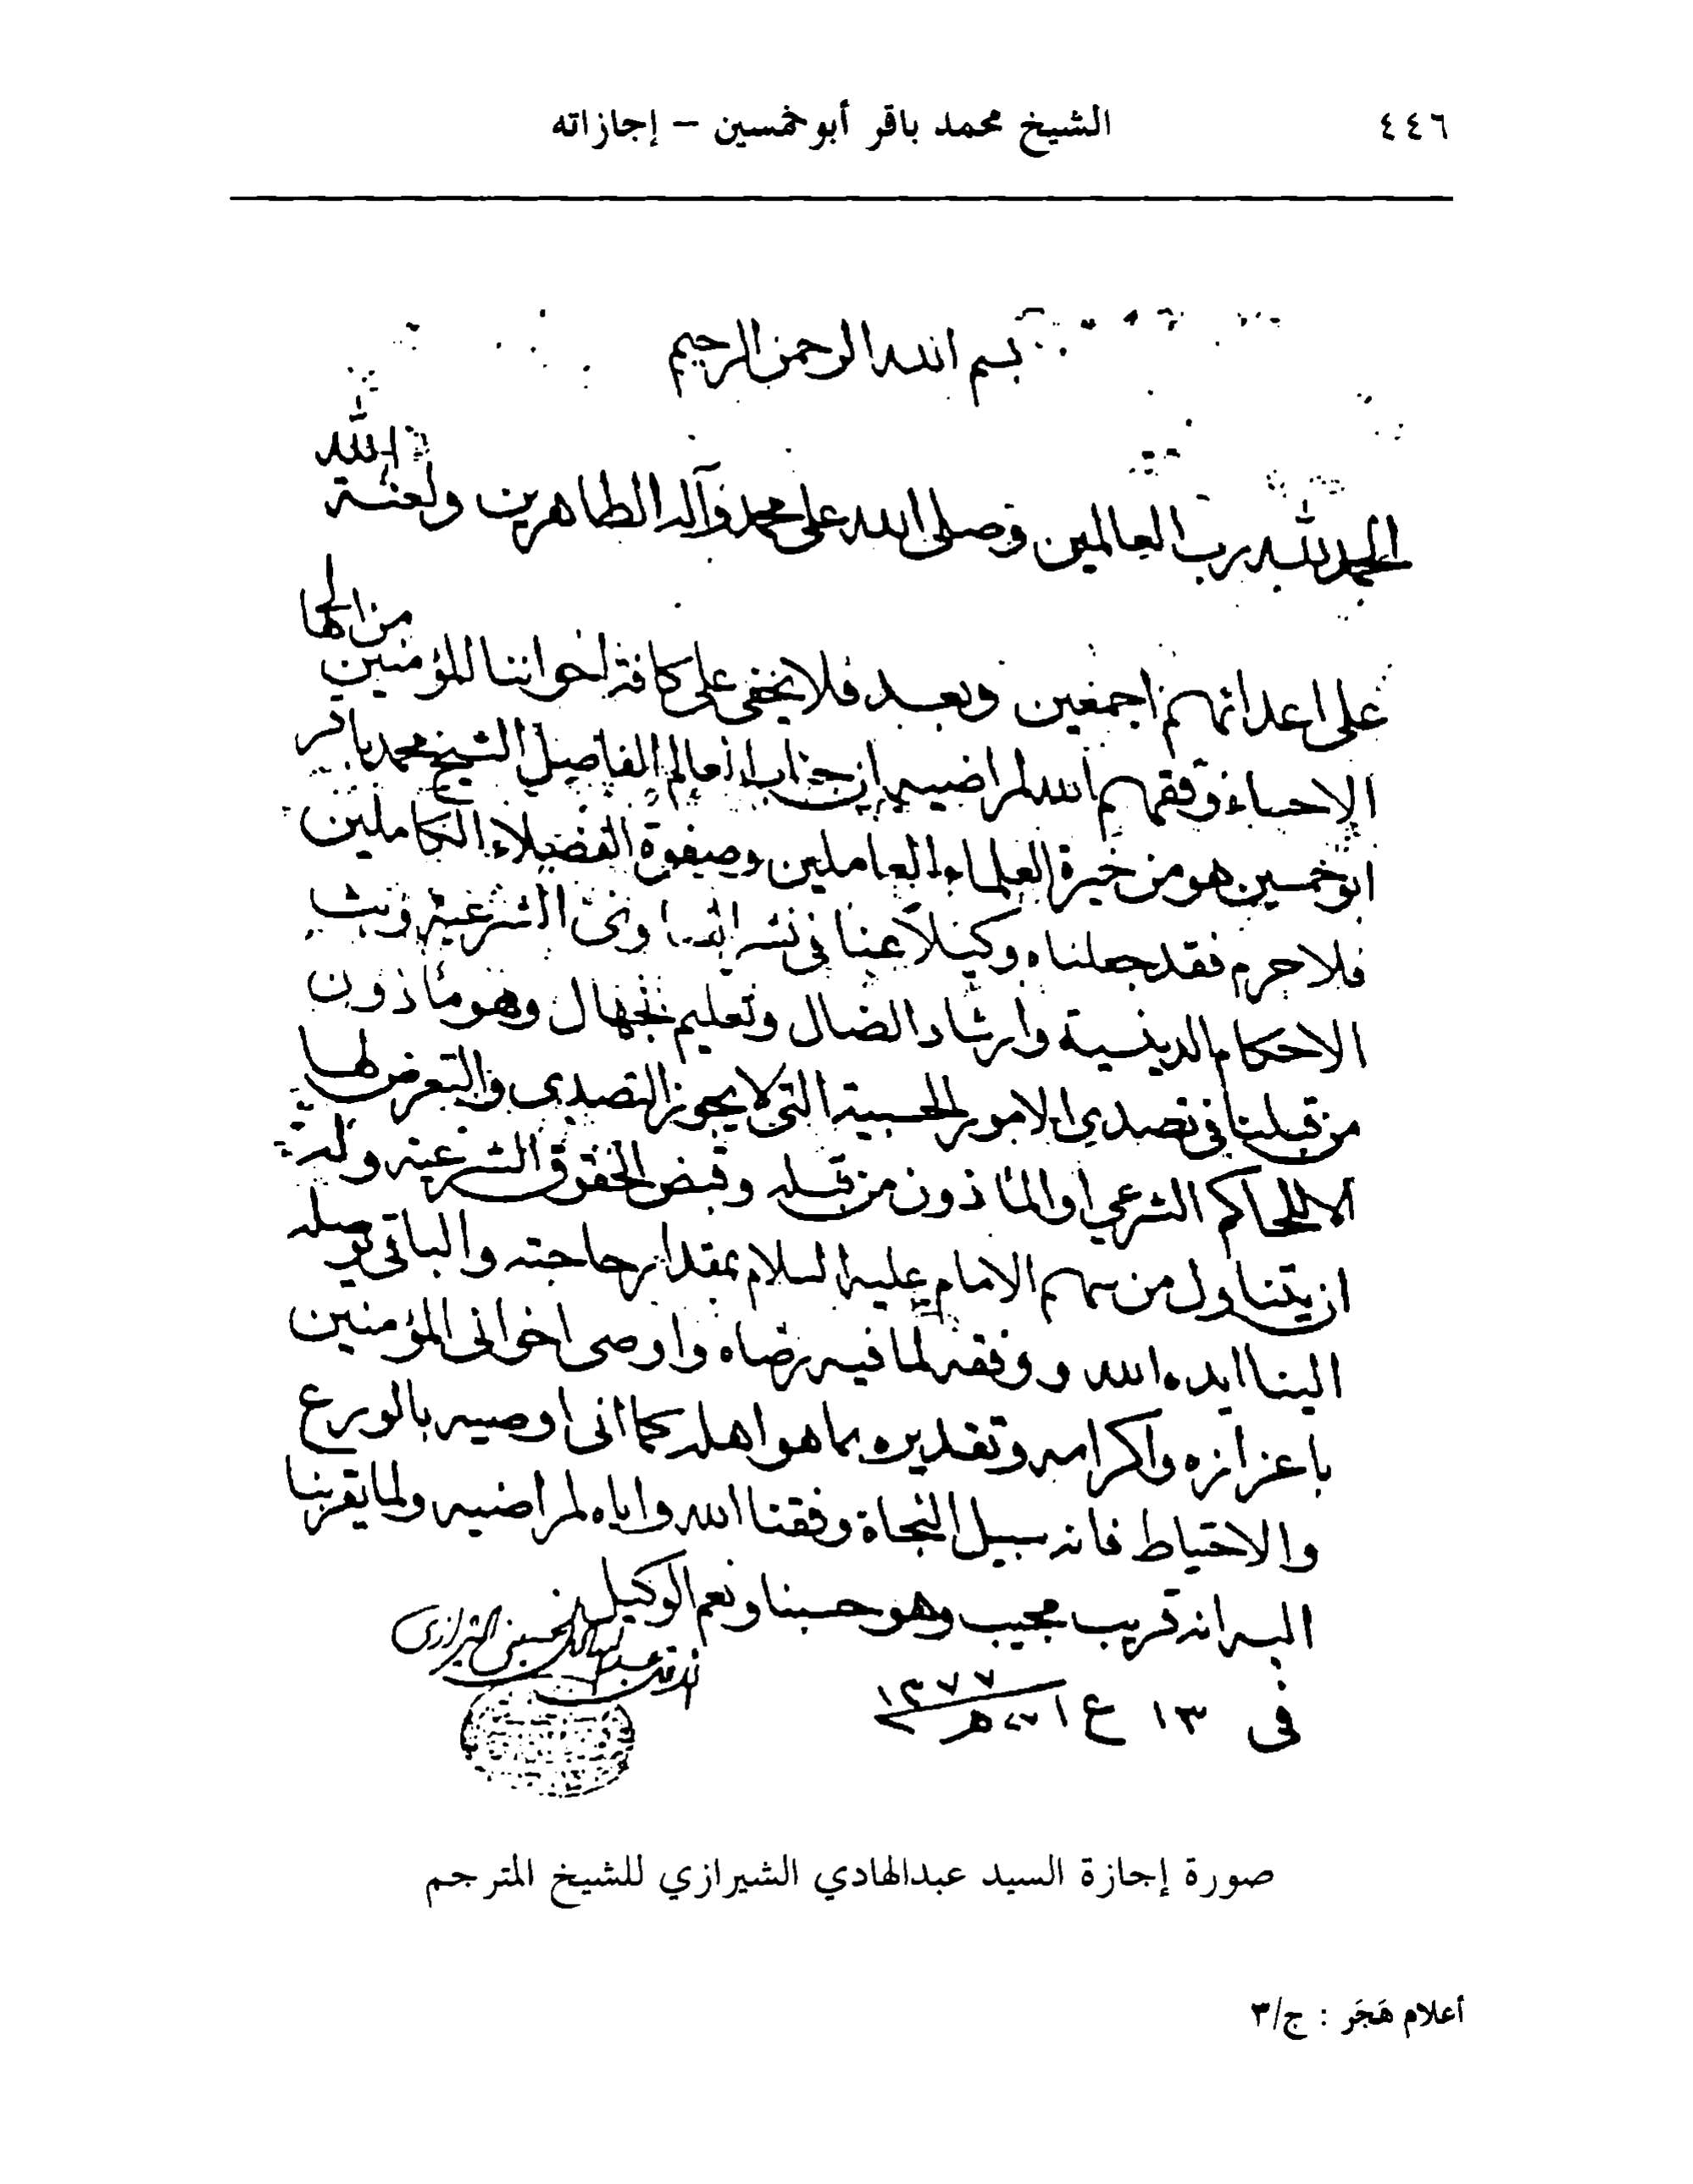 ٤٤٦
الشيخ محمد باقر أبوخمسين – إجازاته
بسم الله الرحمن الرحيم
الحمد لله رب العالمين وصلى الله على محمد وآله الطاهرين ولعنة الله
على اعدائهم اجمعين وبعد فلا يخفى على كافة اخواننا المؤمنين من اهالي
الاحساء وفقهم الله لمراضيه ان جناب العالم الفاضل الشيخ محمد باقر
ابوخمسين هو من خيرة العلماء العاملين وصفوة الفضلاء الكاملين
فلا جرم فقد جعلناه وكيلاً عنا فى نشر الشرعية وبث
الاحكام الدينية وارشاد الضال وتعليم الجهال وهو مأذون
من قبلنا فى تصدي الامور الحسبية التى لا يجوز التصدى والتعرض لها
الا للحاكم الشرعي او المأذون من قبله وقبض الحقوق الشرعية وله
ان يتناول من سهم الامام عليه السلام بمقدار حاجته والباقى يوصله
الينا ايده الله ووفقه لما فيه رضاه واوصى اخوانى المؤمنين
باعزازه واكرامه وتقديره بما هو اهله كما انى اوصيه بالورع
والاحتياط فانه سبيل النجاة وفقنا الله واياه لمراضيه ولما يقربنا
اليه انه قريب مجيب وهو حسبنا ونعم الوكيل
الحسينى الشيرازى
فى ١٣ ع١ ١٣٧٧ هـ
صورة إجازة السيد عبدالهادي الشيرازي للشيخ المترجم
أعلام هَجَر : ج/٣